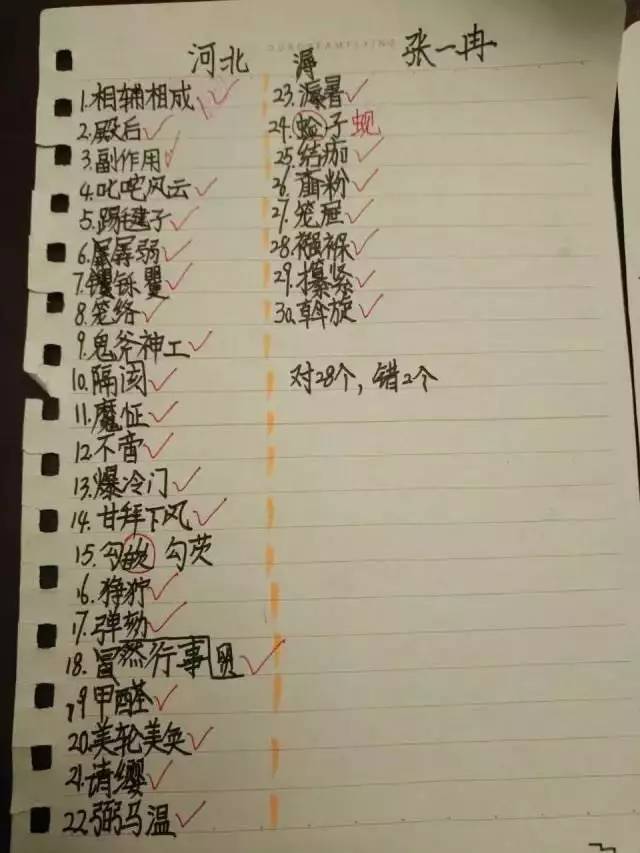 河北 溽 张一冉
1.相辅相成
2.殿后
3.副作用
4.叱咤风云
5.踢毽子
6.孱弱
7.铄矍
8.笼络
9.鬼斧神工
10.隔阂
11.魔怔
12.不啻
13.爆冷门
14.甘拜下风
15.勾 勾芡
16.狰狞
17.弹劾
18.冒然行事
19.甲醛
20.美轮美奂
21.请缨
22.弼马温
23.溽暑
24.子 蚬
25.结痂
26.面粉
27.笼屉
28.襁褓
29.攥紧
30.斡旋
对28个，错2个